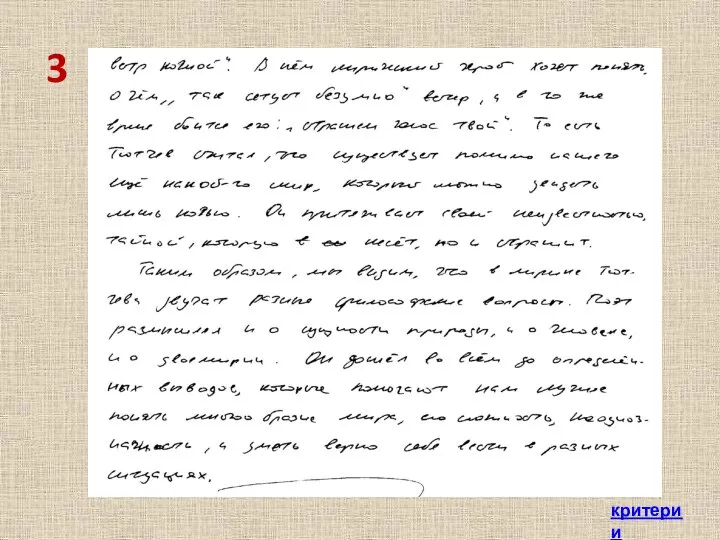 3
ветр ночной". В нём лирический герой хочет понять,
о чём ,,так сетует безумно" ветер, и в то же
время боится его: ,,страшен голос твой". То есть
Тютчев считал, что существует помимо нашего
ещё какой-то мир, который можно увидеть
лишь ночью. Он притягивает своей неизвестностью,
тайной, которую в несёт, но и страшит.
Таким образом, мы видим, что в лирике Тют-
чева звучат разные философские вопросы. Поэт
размышлял и о сущности природы, и о человеке,
и о двоемирии. Он дошёл во всём до определён-
ных выводов, которые помогают нам лучше
понять многообразие мира, его сложность, неодноз-
начность, и уметь верно себя вести в разных
ситуациях.
критери
и